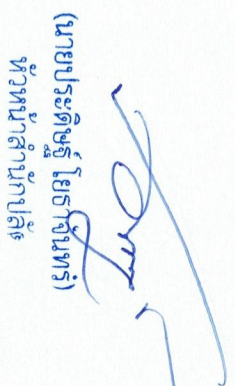 (นายประดิษฐ์ โยธาจันทร์)
หัวหน้าสำนักปลัด